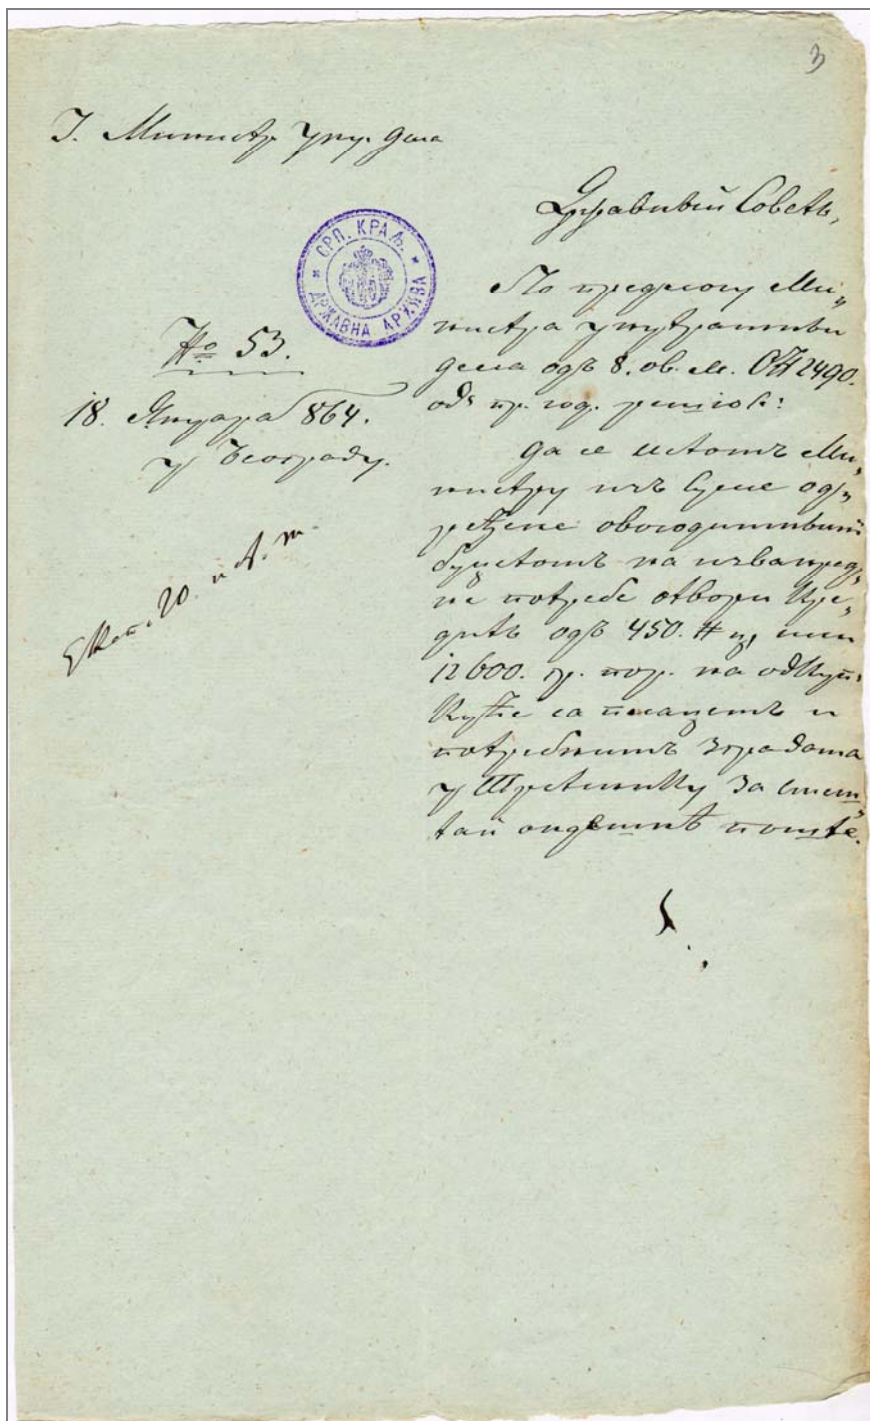 3
Г. Министр. унут. дела
Државный Советъ,
СРП. КРАЉ.
ДРЖАВНА АРХИВА
№ 53.
18. Януара 864.
у Београду.
По предлогу Ми„
нистра унутрашньи
дела одъ 8. ов. м. № 2490.
одъ пр. год. решіо є:
да се истомъ Ми„
нистру изъ суме од„
ређене овогодишньимъ
буџетомъ на изванред„
не потребе отвори кре„
дитъ одъ 450. # ц. или
12600. гр. пор. на откупъ
куће са плацемъ и
потребнимъ зградама
у за смеш„
тай онд. поште.